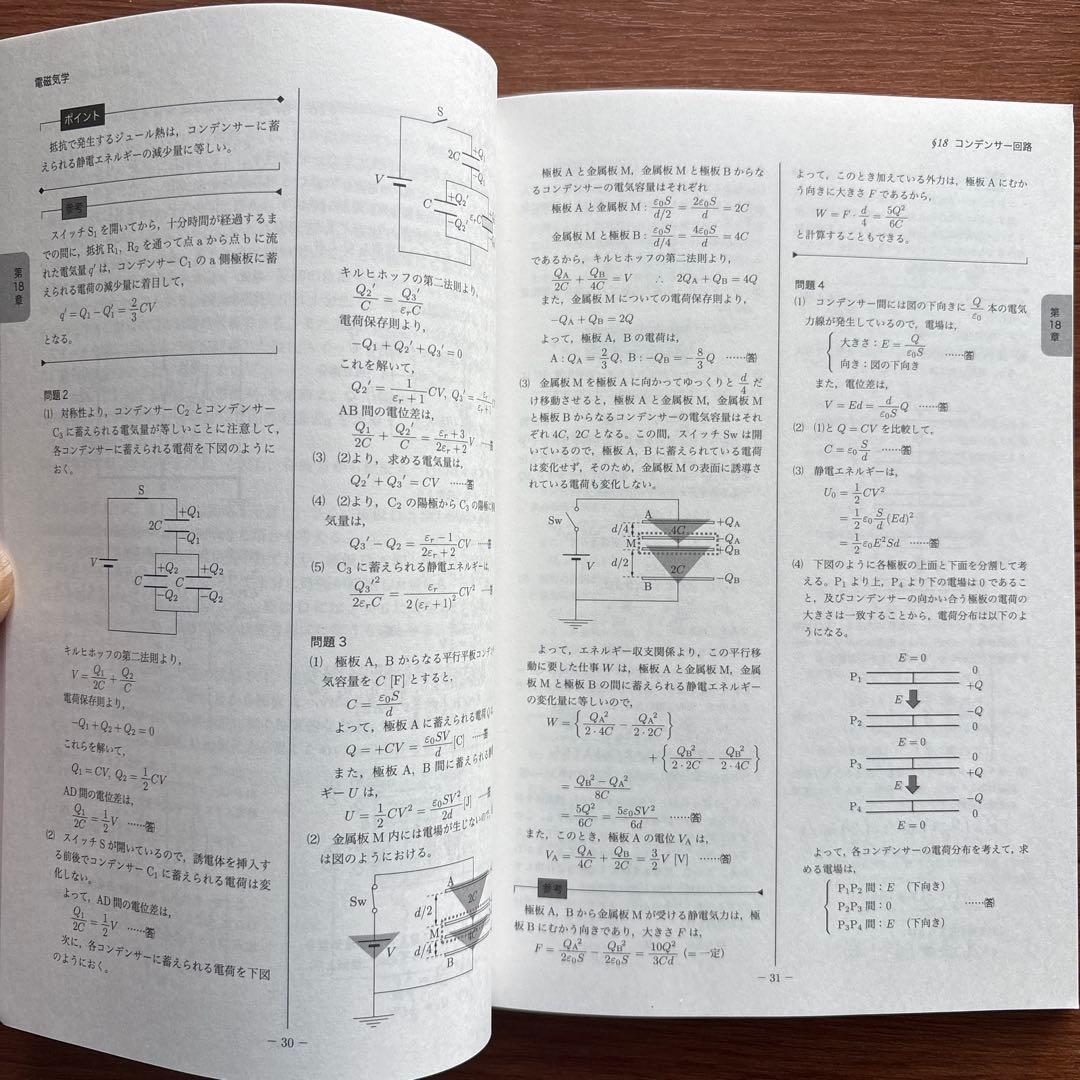 電磁気学
ポイント
抵抗で発生するジュール熱は，コンデンサーに蓄
えられる静電エネルギーの減少量に等しい。
参考
スイッチS₁を開いてから，十分時間が経過するま
での間に，抵抗R₁，R₂を通って点aから点bに流
れた電気量q'は，コンデンサーC₁のa側極板に蓄
えられる電荷の減少量に着目して，
q' = Q₁ − Q₁' = 2/3 CV
となる。
第18章
問題2
(1) 対称性より，コンデンサーC₂とコンデンサー
C₃に蓄えられる電気量が等しいことに注意して，
各コンデンサーに蓄えられる電荷を下図のように
おく。
S
2C
+Q₁
−Q₁
V
+Q₂
+Q₂
C
C
−Q₂
−Q₂
キルヒホッフの第二法則より，
V = Q₁/2C + Q₂/C
電荷保存則より，
−Q₁ + Q₂ + Q₂ = 0
これらを解いて，
Q₁ = CV, Q₂ = 1/2 CV
AD間の電位差は，
Q₁/2C = 1/2 V ……答
(2) スイッチSが開いているので，誘電体を挿入す
る前後でコンデンサーC₁に蓄えられる電荷は変
化しない。
よって，AD間の電位差は，
Q₁/2C = 1/2 V ……答
次に，各コンデンサーに蓄えられる電荷を下図
のようにおく。
S
2C
+Q₁
−Q₁
V
+Q₂'
C
−Q₂'
εᵣC
キルヒホッフの第二法則より，
Q₂'/C = Q₃'/εᵣC
電荷保存則より，
−Q₁ + Q₂' + Q₃' = 0
これを解いて，
Q₂' = 1/(εᵣ+1) CV, Q₃' =
AB間の電位差は，
Q₁/2C + Q₂'/C = (εᵣ+3)/(2εᵣ+2) V
(3) (2)より，求める電気量は，
Q₂' + Q₃' = CV ……答
(4) (2)より，C₂の陽極からC₃の陽極
気量は，
Q₃' − Q₂ = (εᵣ−1)/(2εᵣ+2) CV ……答
(5) C₃に蓄えられる静電エネルギーは，
Q₃'²/2εᵣC = εᵣ/2(εᵣ+1)² CV²
問題3
(1) 極板A，Bからなる平行平板コンデ
気容量をC [F]とすると，
C = ε₀S/d
よって，極板Aに蓄えられる電荷Q
Q = +CV = ε₀SV/d [C]
また，極板A，B間に蓄えられる
ギーUは，
U = 1/2 CV² = ε₀SV²/2d [J]
(2) 金属板M内には電場が生じない
は図のようにおける。
Sw
A
d/2
2C
M
d/4
4C
V
B
− 30 −
§18 コンデンサー回路
極板Aと金属板M，金属板Mと極板Bからな
るコンデンサーの電気容量はそれぞれ
極板Aと金属板M：ε₀S/(d/2) = 2ε₀S/d = 2C
金属板Mと極板B：ε₀S/(d/4) = 4ε₀S/d = 4C
であるから，キルヒホッフの第二法則より，
Q_A/2C + Q_B/4C = V ∴ 2Q_A + Q_B = 4Q
また，金属板Mについての電荷保存則より，
−Q_A + Q_B = 2Q
よって，極板A，Bの電荷は，
A：Q_A = 2/3 Q, B：−Q_B = −8/3 Q ……答
(3) 金属板Mを極板Aに向かってゆっくりとd/4だ
け移動させると，極板Aと金属板M，金属板M
と極板Bからなるコンデンサーの電気容量はそれ
ぞれ4C, 2Cとなる。この間，スイッチSwは開
いているので，極板A，Bに蓄えられている電荷
は変化せず，そのため，金属板Mの表面に誘導さ
れている電荷も変化しない。
Sw
A
+Q_A
d/4
4C
M
−Q_A
+Q_B
d/2
2C
V
B
−Q_B
よって，エネルギー収支関係より，この平行移
動に要した仕事Wは，極板Aと金属板M，金属
板Mと極板Bの間に蓄えられる静電エネルギー
の変化量に等しいので，
W = {Q_A²/2·4C − Q_A²/2·2C}
+ {Q_B²/2·2C − Q_B²/2·4C}
= (Q_B² − Q_A²)/8C
= 5Q²/6C = 5ε₀SV²/6d ……答
また，このとき，極板Aの電位V_Aは，
V_A = Q_A/4C + Q_B/2C = 3/2 V [V] ……答
参考
極板A，Bから金属板Mが受ける静電気力は，極
板Bにむかう向きであり，大きさFは，
F = Q_A²/2ε₀S − Q_B²/2ε₀S = 10Q²/3Cd (= 一定)
よって，このとき加えている外力は，極板Aにむか
う向きに大きさFであるから，
W = F · d/4 = 5Q²/6C
と計算することもできる。
第18章
問題4
(1) コンデンサー間には図の下向きにQ/ε₀本の電気
力線が発生しているので，電場は，
大きさ：E = Q/ε₀S ……答
向き：図の下向き
また，電位差は，
V = Ed = d/ε₀S Q ……答
(2) (1)とQ = CVを比較して，
C = ε₀ S/d ……答
(3) 静電エネルギーは，
U₀ = 1/2 CV²
= 1/2 ε₀ S/d (Ed)²
= 1/2 ε₀E²Sd ……答
(4) 下図のように各極板の上面と下面を分割して考
える。P₁より上，P₄より下の電場は0であるこ
と，及びコンデンサーの向かい合う極板の電荷の
大きさは一致することから，電荷分布は以下のよ
うになる。
E = 0
P₁
0
+Q
E
P₂
−Q
0
E = 0
P₃
0
+Q
E
P₄
−Q
0
E = 0
よって，各コンデンサーの電荷分布を考えて，求
める電場は，
P₁P₂間：E （下向き）
P₂P₃間：0 ……答
P₃P₄間：E （下向き）
− 31 −